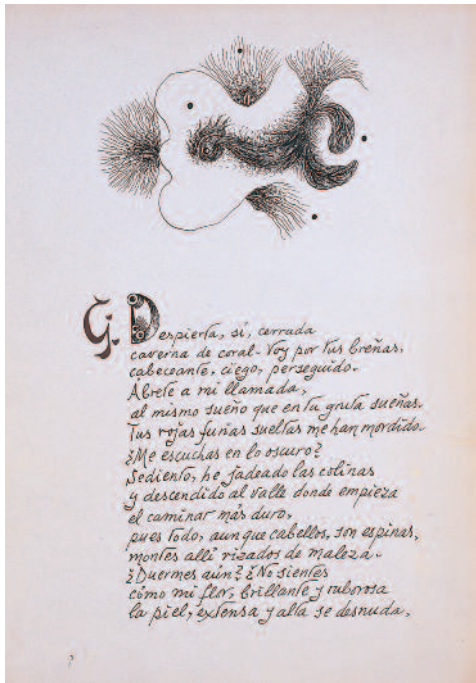 G. Despierta, sí, cerrada
caverna de coral. Voy por tus breñas,
cabeceante, ciego, perseguido.
Ábrete a mi llamada,
al mismo sueño que en tu gruta sueñas.
Tus rojas furias sueltas me han mordido.
¿Me escuchas en lo oscuro?
Sediento, he jadeado las colinas
y descendido al valle donde empieza
el caminar más duro,
pues todo, aunque cabellos, son espinas,
montes allí rizados de maleza.
¿Duermes aún? ¿No sientes
cómo mi flor, brillante y ruborosa
la piel, extensa y alta se desnuda,